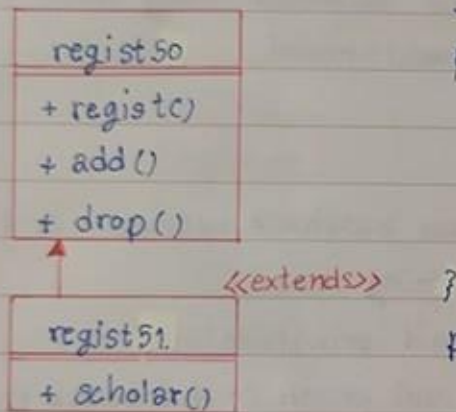 regist50
+ regist()
+ add()
+ drop()
<<extends>>
}
regist51.
+ scholar()